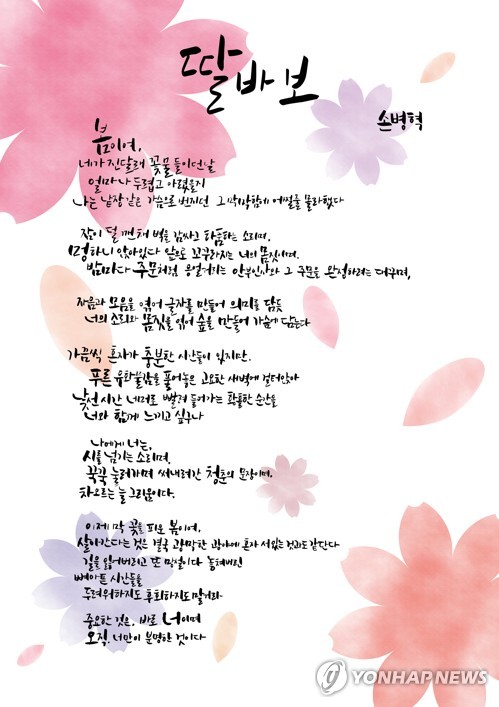 딸바보
손병혁
봄이여,
네가 진달래 꽃물 들이던 날
얼마나 두렵고 아렸을지
나는 낱장같은 가슴으로 번지던 그 막막함에 어쩔줄 몰라했다
잠이 덜 깬채 벽을 감싸고 하품하는 소리며,
멍하니 앉아있다 앞으로 꼬꾸라지는 너의 몸짓이며,
밤마다 주문처럼 웅얼거리는 안부인사와 그 주문을 완성하려는 대꾸며,
자음과 모음을 엮어 글자를 만들어 의미를 담듯
너의 소리와 몸짓을 엮어 숲을 만들어 가슴에 담는다
가끔씩 혼자가 충분한 시간들이 있지만,
푸른 유화물감을 풀어놓은 고요한 새벽에 걸터앉아
낯선 시간 네게로 빨려 들어가는 황홀한 순간을
너와 함께 느끼고 싶구나
나에게 너는,
시를 넘기는 소리며,
꾹꾹 눌러가며 써내려간 청춘의 문장이며,
차오르는 늘 그리움이다.
이제 막 꽃을 피운 봄이여,
살아간다는 것은 결국 광막한 광야에 혼자 서있는 것과도 같단다
길을 잃어버리고 또 막섬이다 놓쳐버린
뼈아픈 시간들을
두려워하지도 후회하지도 말거라
중요한 것은, 바로 너이며
오직, 너만이 분명한 것이다
YONHAP NEWS